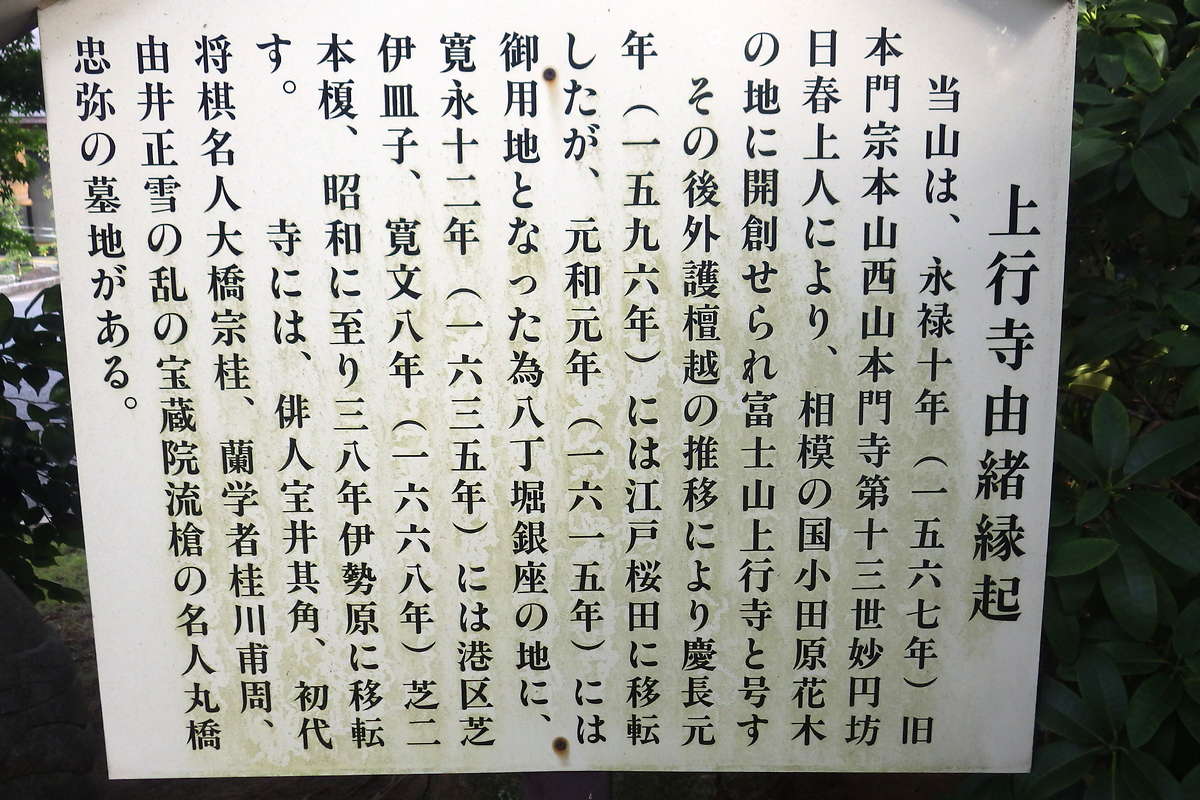 上行寺由緒縁起
当山は、永禄十年（一五六七年）旧
本門宗本山西山本門寺第十三世妙円坊
日春上人により、相模の国小田原花木
の地に開創せられ富士山上行寺と号す
その後外護檀越の推移により慶長元
年（一五九六年）には江戸桜田に移転
したが、元和元年（一六一五年）には
御用地となった為八丁堀銀座の地に、
寛永十二年（一六三五年）には港区芝
伊皿子、寛文八年（一六六八年）芝二
本榎、昭和に至り三八年伊勢原に移転
す。　　寺には、俳人宝井其角、初代
将棋名人大橋宗桂、蘭学者桂川甫周、
由井正雪の乱の宝蔵院流槍の名人丸橋
忠弥の墓地がある。